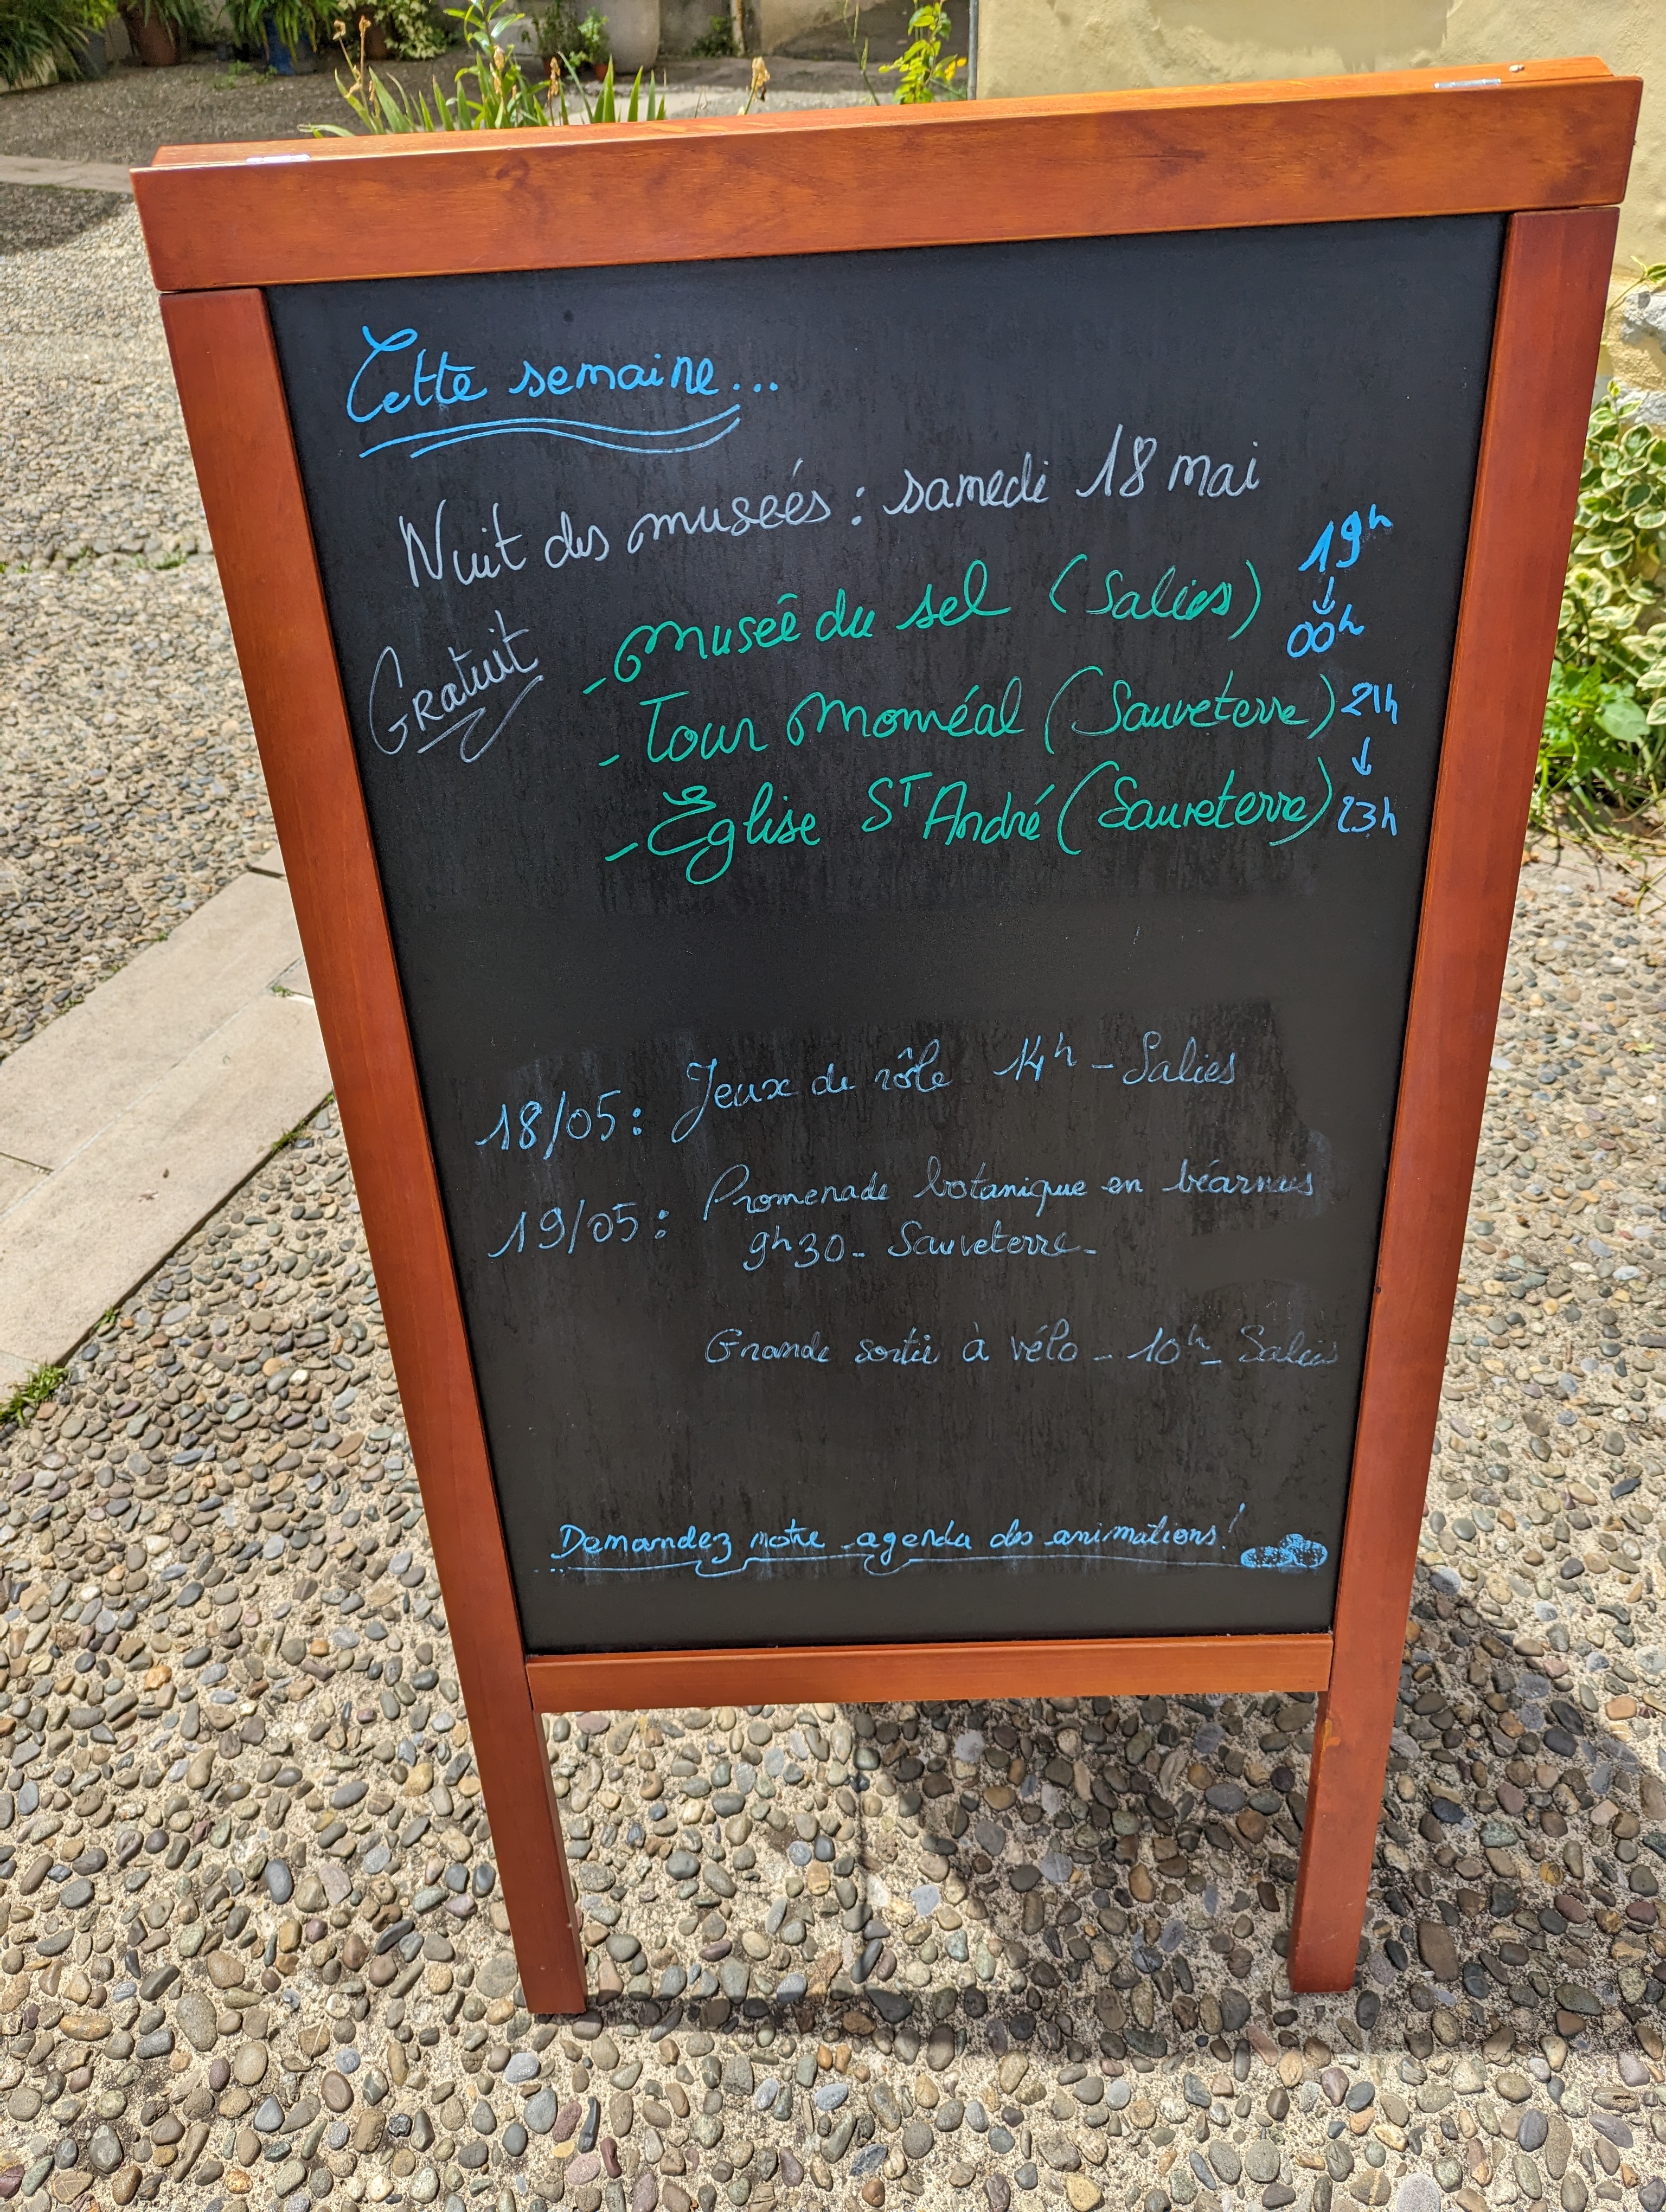 Cette semaine...
Nuit des musées : samedi 18 mai
Gratuit
- Musée du sel (Salies) 19h ↓ 00h
- Tour Monréal (Sauveterre) 21h
↓
- Église St André (Sauveterre) 23h
18/05 : Jeux de rôle 14h - Salies
19/05 : Promenade botanique en béarnais
9h30 - Sauveterre -
Grande sortie à vélo - 10h - Salies
Demandez notre agenda des animations !